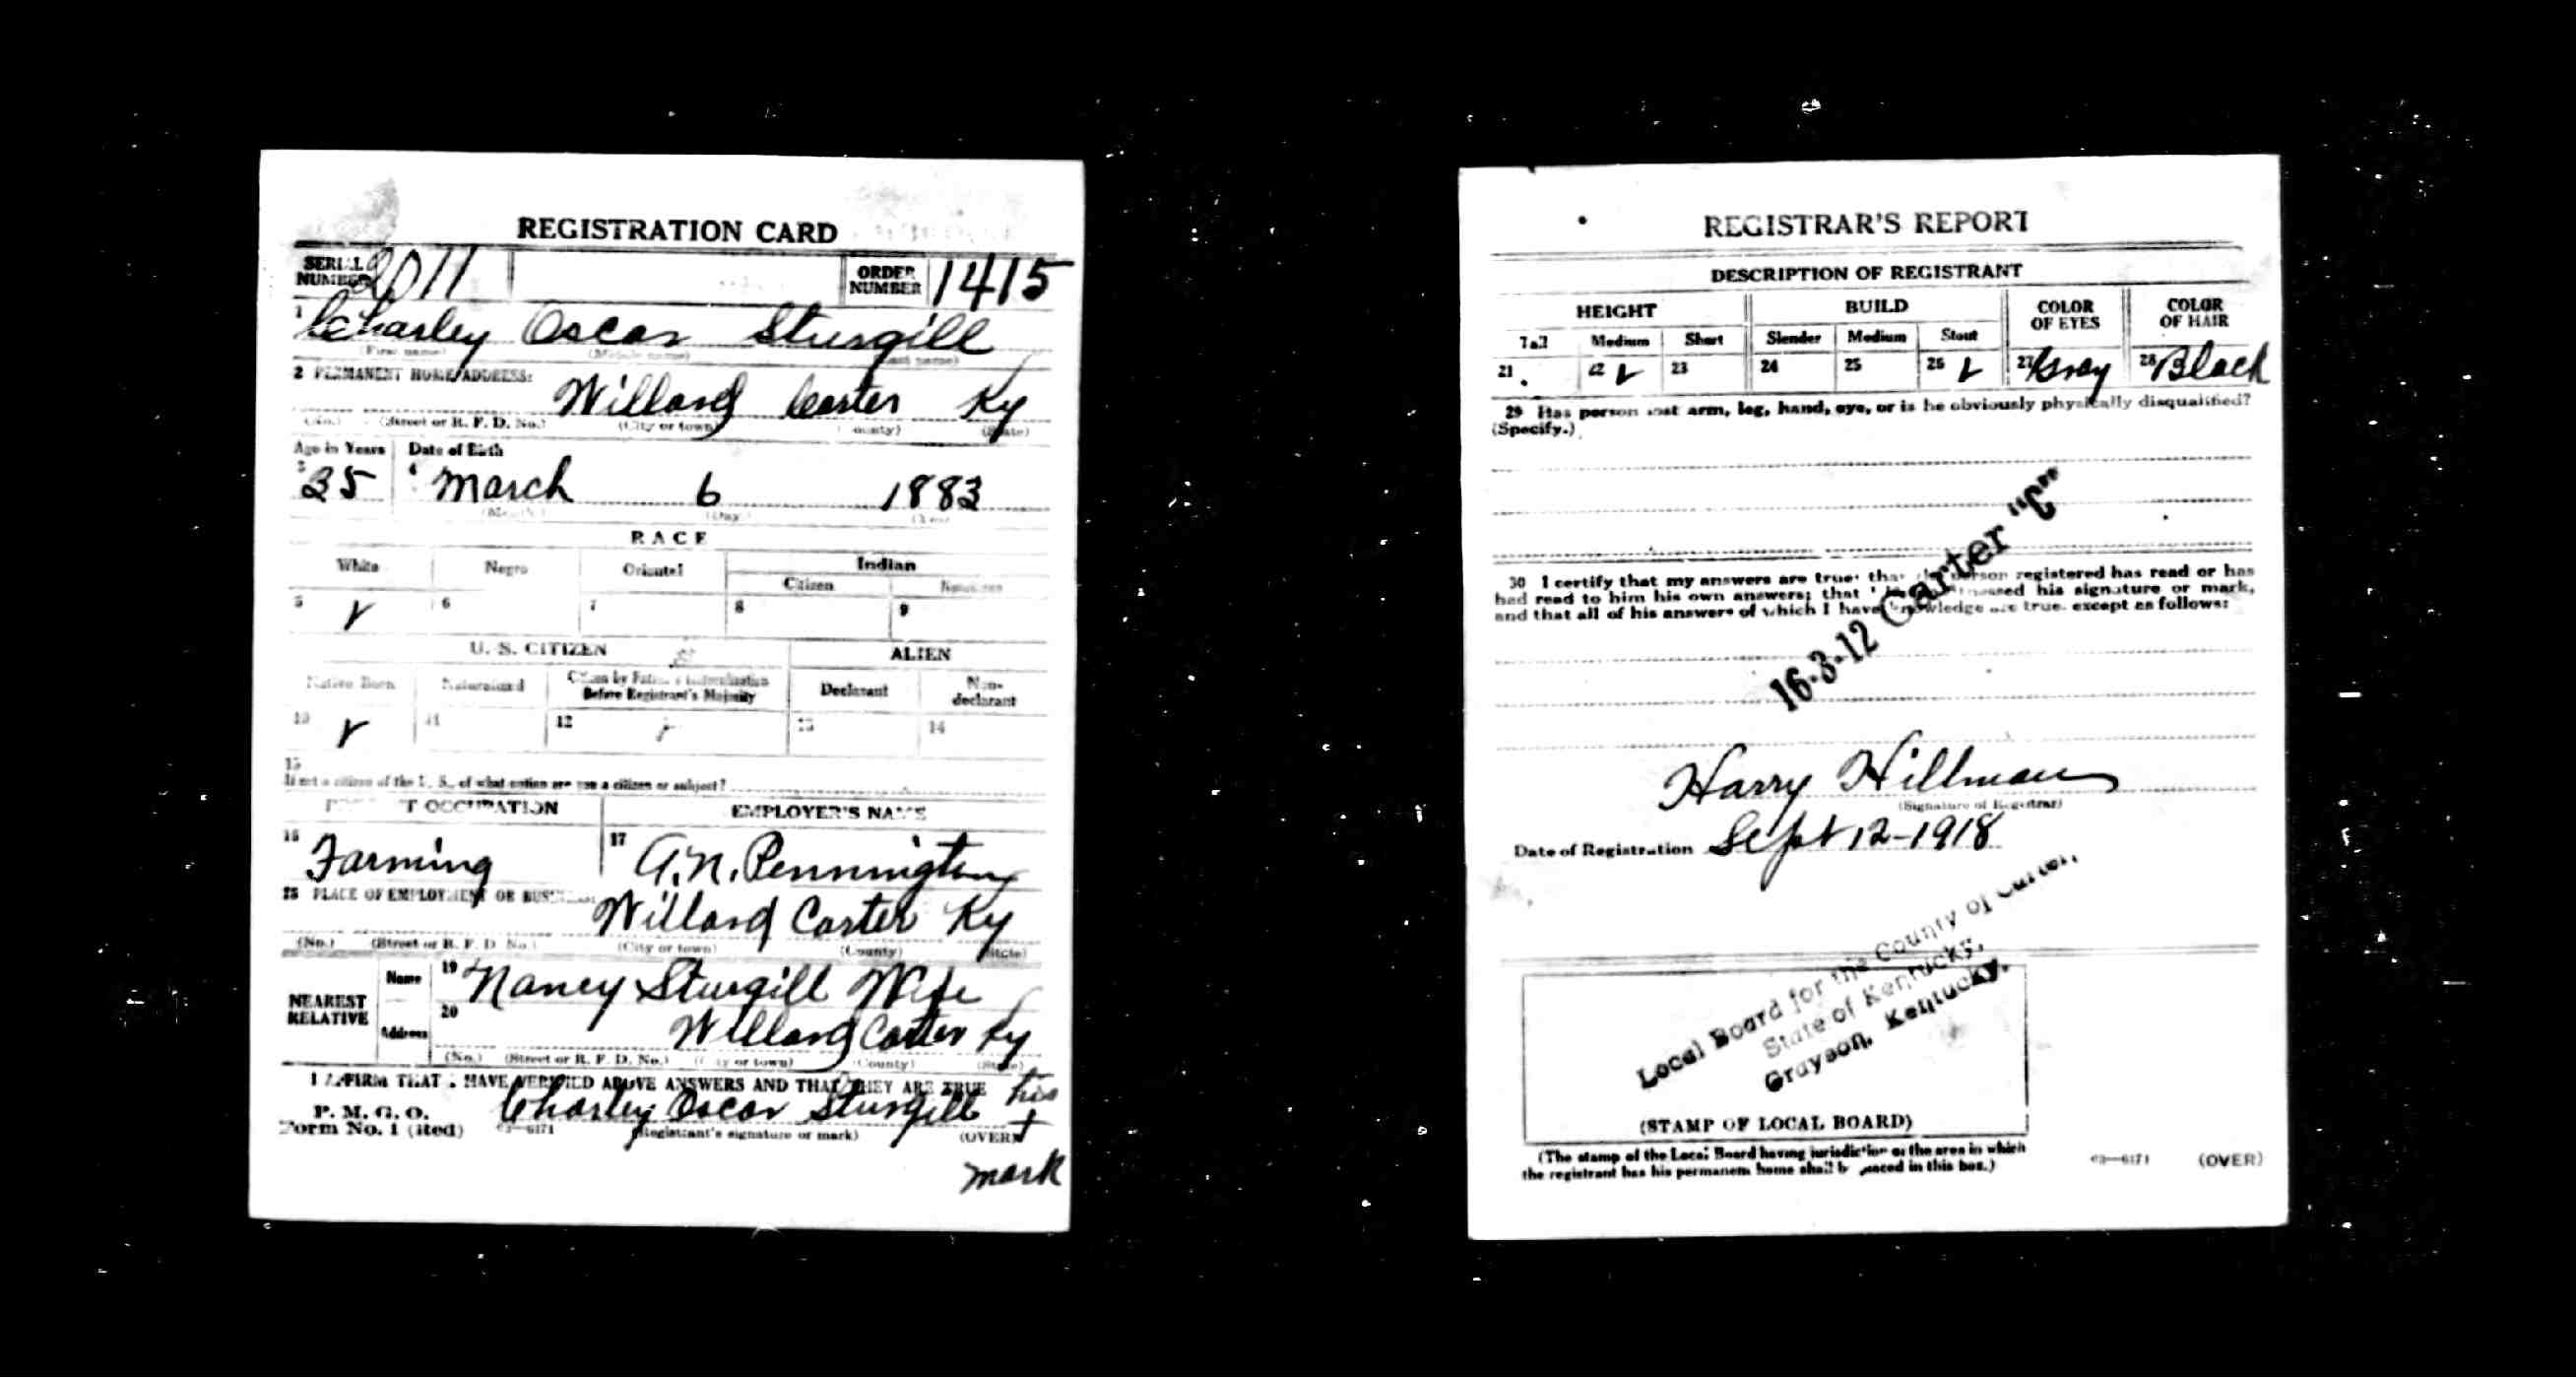 REGISTRATION CARD
SERIAL NUMBER 2011 ORDER NUMBER 1415
1 Charley Oscar Sturgill
(First name) (Middle name) (Last name)
2 PERMANENT HOME ADDRESS:
Willard Carter Ky
(No.) (Street or R. F. D. No.) (City or town) (County) (State)
Age in Years Date of Birth
3 35 4 March 6 1883
(Month) (Day) (Year)
RACE
White Negro Oriental Indian
Citizen Noncitizen
5 ✓ 6 7 8 9
U. S. CITIZEN ALIEN
Native Born Naturalized Citizen by Father's Naturalization Before Registrant's Majority Declarant Non-declarant
10 ✓ 11 12 13 14
15
If not a citizen of the U. S., of what nation are you a citizen or subject?
PRESENT OCCUPATION EMPLOYER'S NAME
16 Farming 17 A.N. Pennington
18 PLACE OF EMPLOYMENT OR BUSINESS:
Willard Carter Ky
(No.) (Street or R. F. D. No.) (City or town) (County) (State)
NEAREST RELATIVE
Name 19 Nancy Sturgill Wife
Address 20 Willard Carter Ky
(No.) (Street or R. F. D. No.) (City or town) (County) (State)
I AFFIRM THAT I HAVE VERIFIED ABOVE ANSWERS AND THAT THEY ARE TRUE his
P. M. G. O.
Form No. 1 (Red) Charley Oscar Sturgill +
03—6171 (Registrant's signature or mark) (OVER)
mark
REGISTRAR'S REPORT
DESCRIPTION OF REGISTRANT
HEIGHT BUILD COLOR OF EYES COLOR OF HAIR
Tall Medium Short Slender Medium Stout
21 22 ✓ 23 24 25 26 ✓ 27 Gray 28 Black
29 Has person lost arm, leg, hand, eye, or is he obviously physically disqualified?
(Specify.)
30 I certify that my answers are true; that the person registered has read or has
had read to him his own answers; that I have witnessed his signature or mark,
and that all of his answers of which I have knowledge are true, except as follows:
16-3-12 Carter "C"
Harry Hillman
(Signature of Registrar)
Date of Registration Sept 12-1918
Local Board for the County of Carter,
State of Kentucky,
Grayson, Kentucky.
(STAMP OF LOCAL BOARD)
(The stamp of the Local Board having jurisdiction of the area in which
the registrant has his permanent home shall be placed in this box.)
03—6171 (OVER)